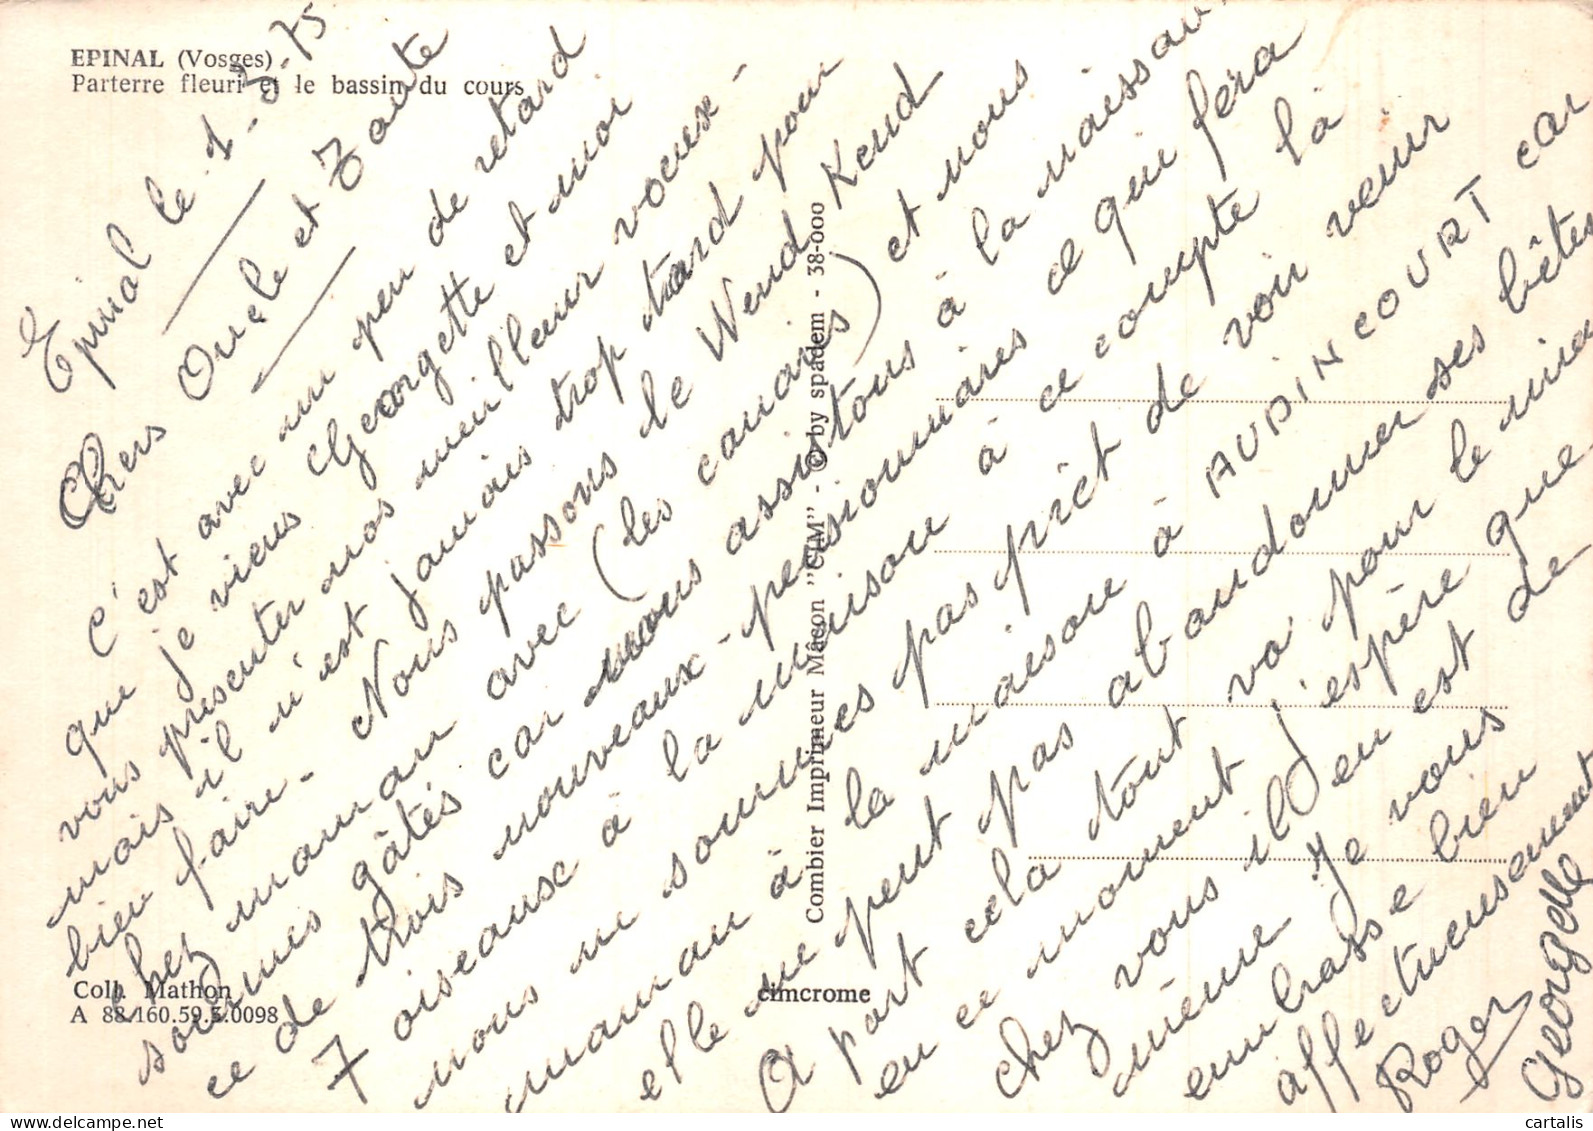 EPINAL (Vosges)
Parterre fleuri et le bassin du cours
Epinal le 1-3-75
Chers Oncle et Tante
c'est avec un peu de retard
que je viens Georgette et moi
vous présenter nos meilleurs voeux -
mais il n'est jamais trop tard pour
bien faire. Nous passons le Wend Kend
chez maman avec (les canaris) et nous
sommes gâtés car nous assistons à la naissan
ce de trois nouveaux-pensionnaires ce qui fera
7 oiseaux à la maison à ce compte là
nous ne sommes pas prêt de voir venir
maman à la maison à AUDINCOURT car
elle ne peut pas abandonner ses bêtes
A part cela tout va pour le mieux
en ce moment j'espère que
chez vous il en est de
même Je vous
embrasse bien
affectueusement
Roger Georgette
Combier Imprimeur Mâcon "CIM" - © by spadem - 38-000
Coll. Mathon
A 88.160.59.5.0098
cimcrome
© cartalis